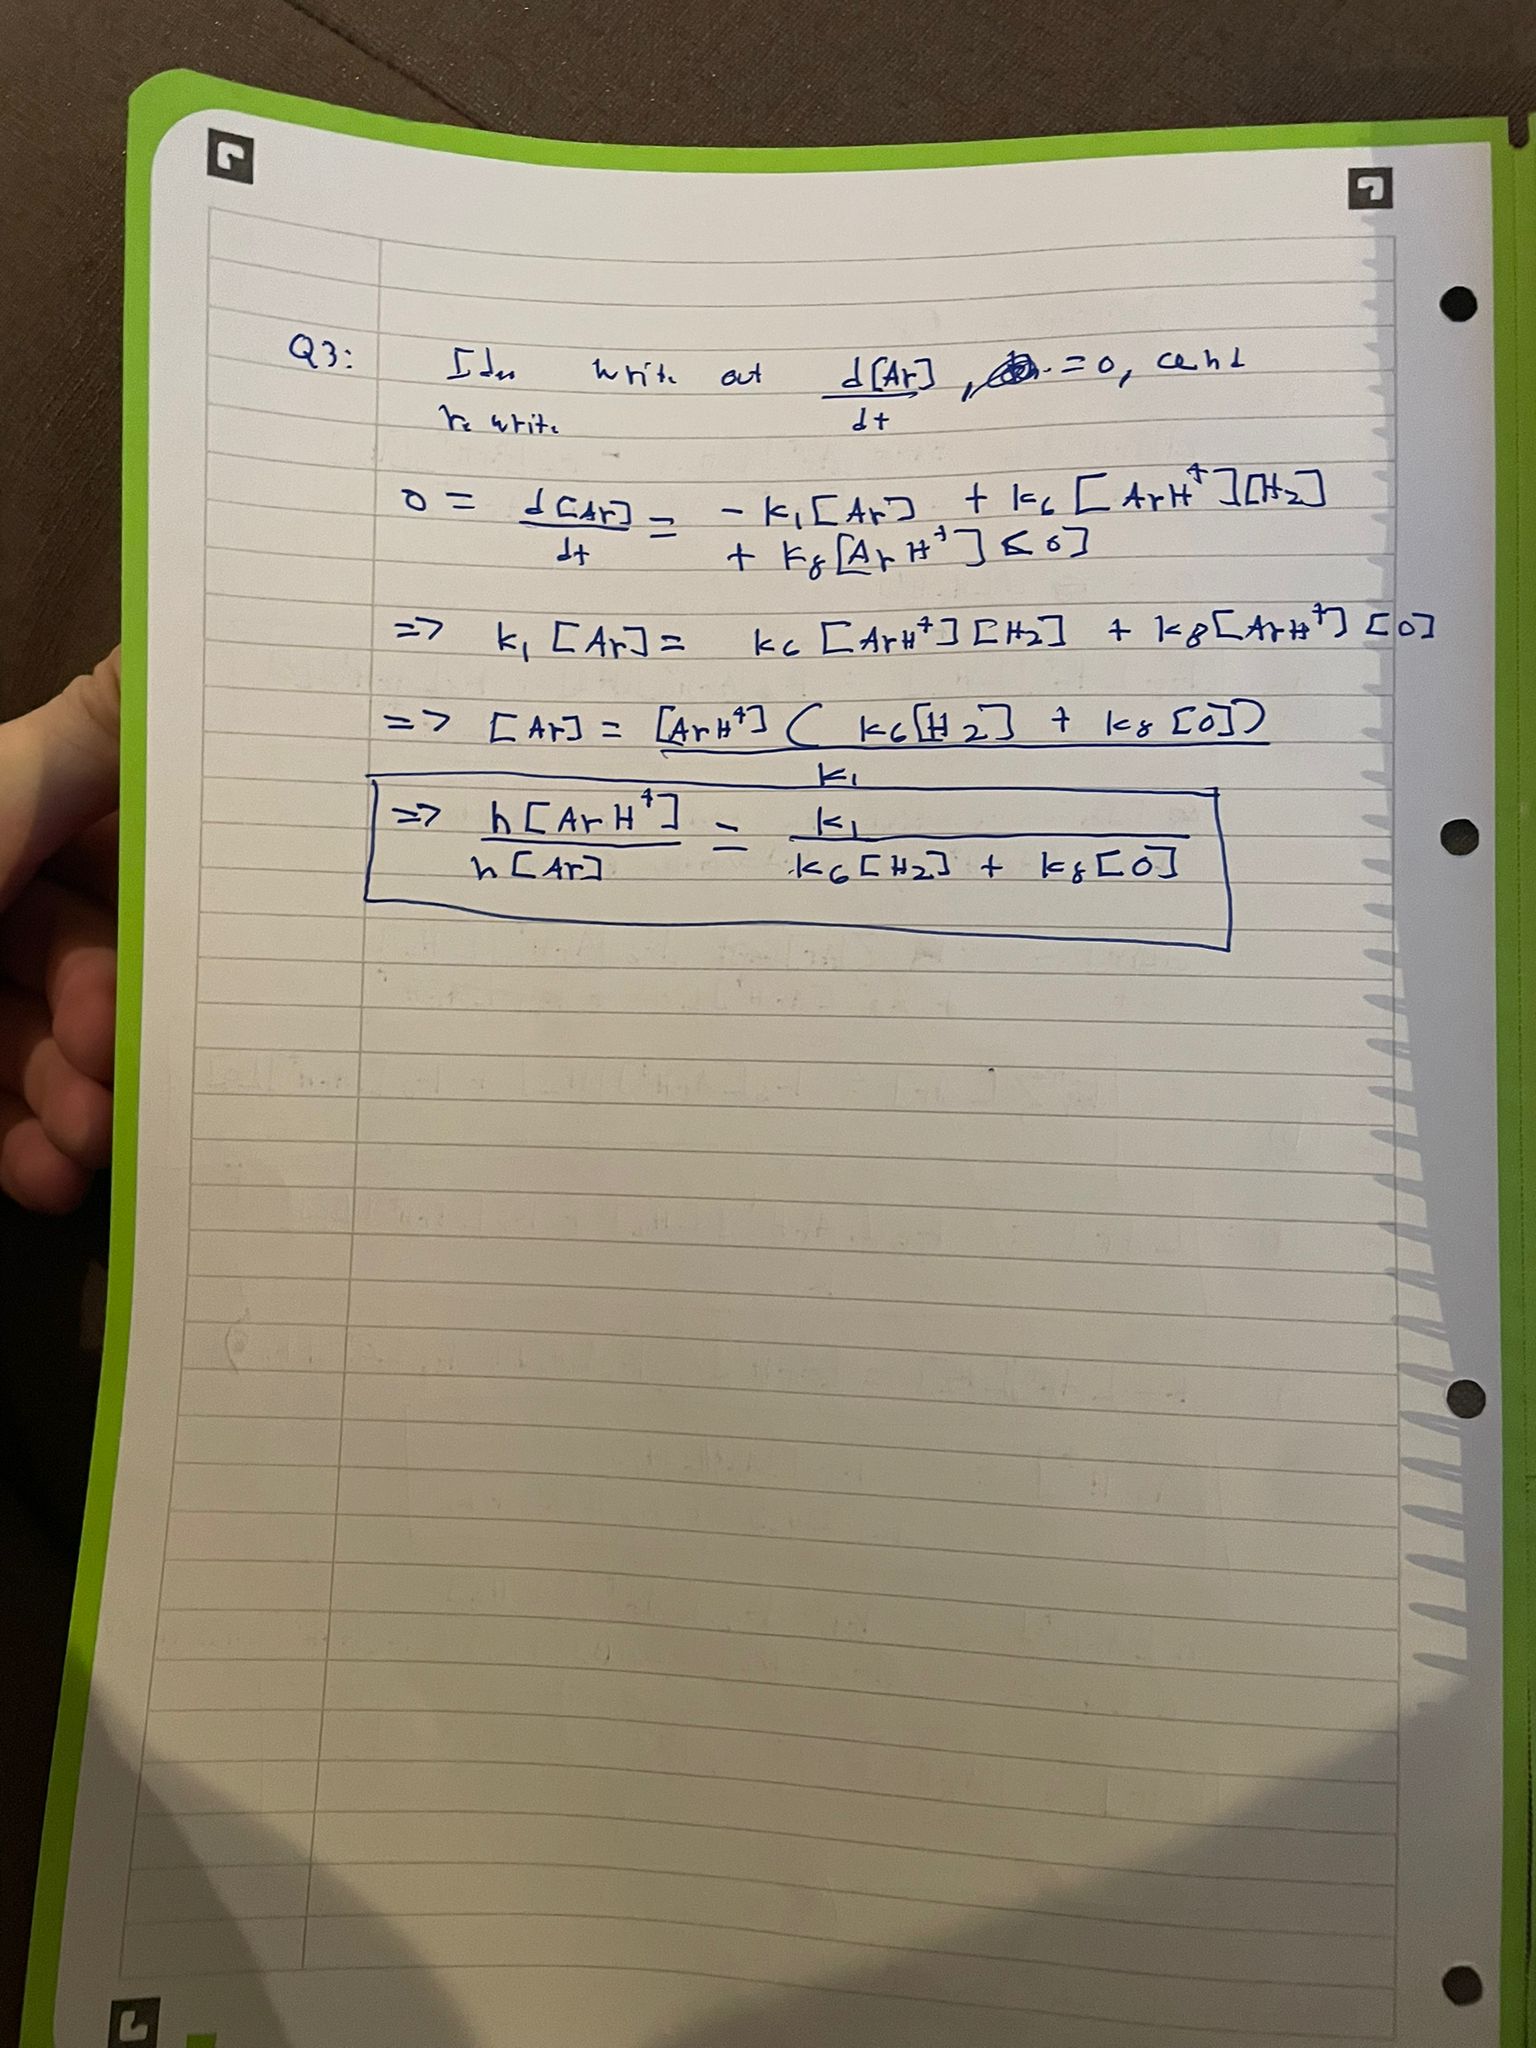 Q3: Idea write out d[Ar]/dt, = 0, and
rewrite
0 = d[Ar]/dt = - k₁[Ar] + k₆[ArH⁺][H₂]
+ k₈[ArH⁺][O]
=> k₁[Ar] = k₆[ArH⁺][H₂] + k₈[ArH⁺][O]
=> [Ar] = [ArH⁺](k₆[H₂] + k₈[O])/k₁
=> n[ArH⁺]/n[Ar] = k₁/k₆[H₂] + k₈[O]